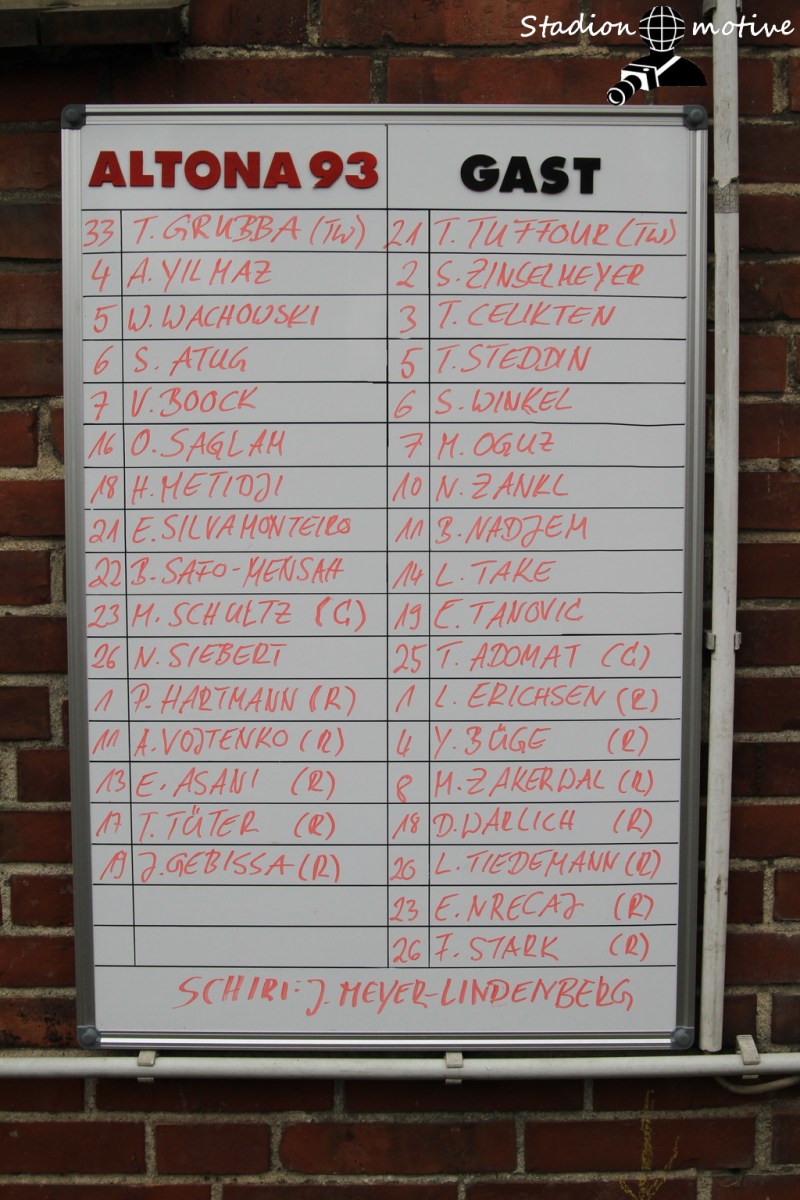 Stadion motive
ALTONA 93 GAST
33 T. GRUBBA (TW) 21 T. TUFFOUR (TW)
4 A. YILMAZ 2 S. ZINSELMEYER
5 W. WACHOWSKI 3 T. CELIKTEN
6 S. ATUG 5 T. STEDDIN
7 V. BOOCK 6 S. WINKEL
16 O. SAGLAM 7 M. OGUZ
18 H. METIDJI 10 N. ZANKL
21 E. SILVA MONTEIRO 11 B. NADJEM
22 B. SAFO-MENSAH 14 L. TAKE
23 M. SCHULTZ (C) 19 E. TANOVIC
26 N. SIEBERT 25 T. ADOMAT (C)
1 P. HARTMANN (R) 1 L. ERICHSEN (R)
11 A. VOJTENKO (R) 4 Y. BÜGE (R)
13 E. ASANI (R) 8 M. ZAKERWAL (R)
17 T. TÜTER (R) 18 D. WARLICH (R)
19 J. GEBISSA (R) 20 L. TIEDEMANN (R)
23 E. NRECAJ (R)
26 F. STARK (R)
SCHIRI: J. MEYER-LINDENBERG